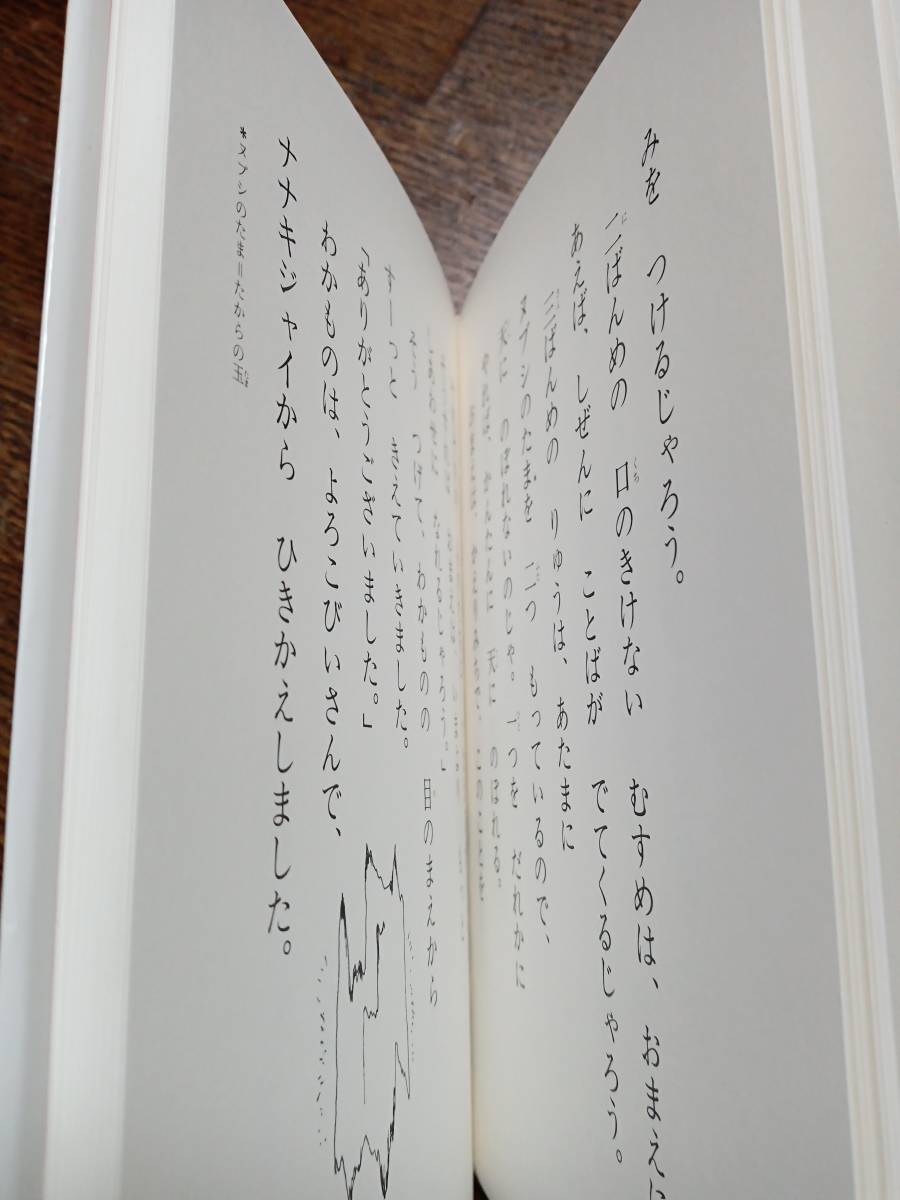 みを　つけるじゃろう。
二ばんめの　口のきけない　むすめは、おまえに
あえば、しぜんに　ことばが　でてくるじゃろう。
三ばんめの　りゅうは、あたまに
ヌブシのたまを　二つ　もっているので、
天に　のぼれないのじゃ。一つを　だれかに
天に　のぼれる。
つけて、わかものの　目のまえから
すーっと　きえていきました。
「ありがとうございました。」
わかものは、よろこびいさんで、
メメキジャイから　ひきかえしました。
*ヌブシのたま＝たからの玉